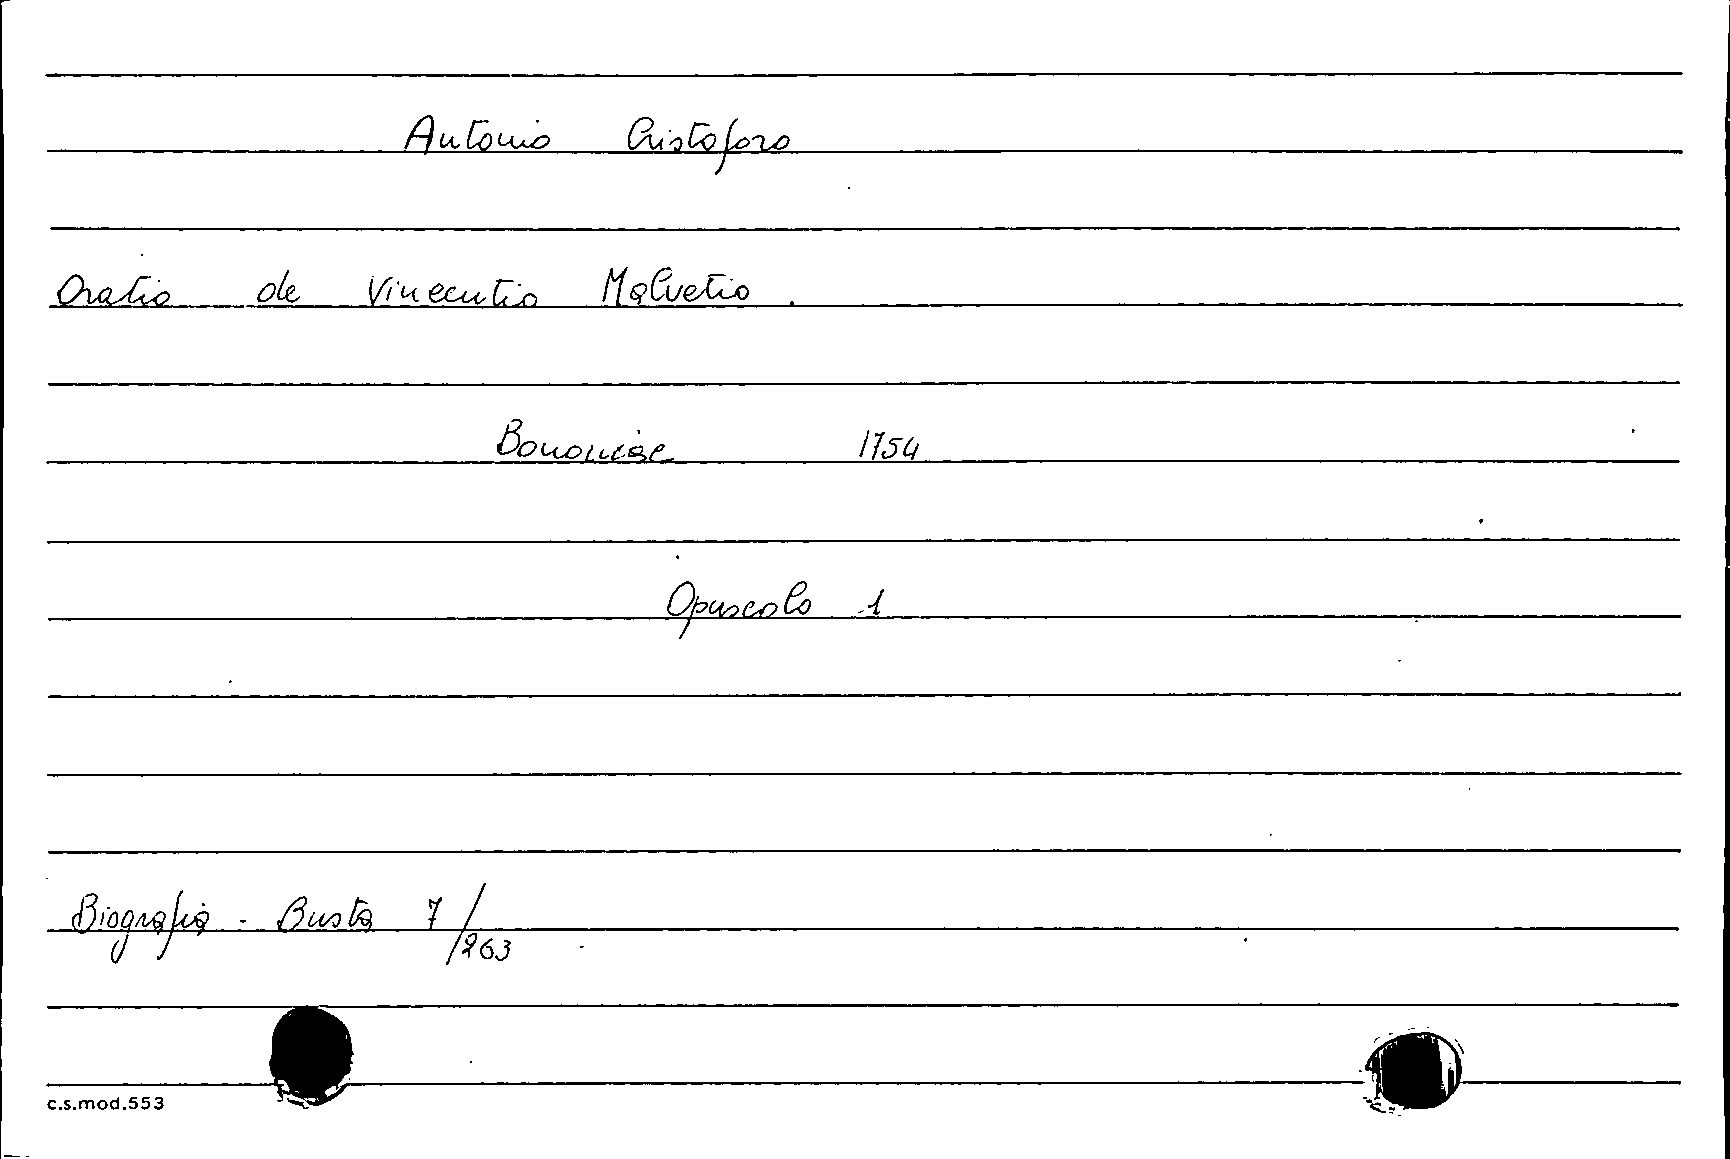 Antonio Cristoforo
Oratio de Vincentio Malvetio.
Bononiae 1754
Opuscolo 1
Biografia - Busta 7/263
c.s.mod.553